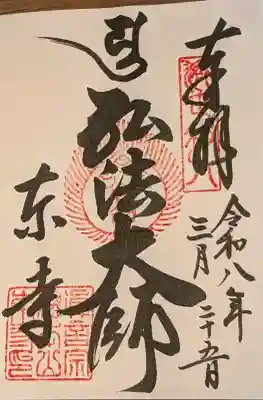 奉拝
令和八年
三月二十五日
弘法大師
東寺